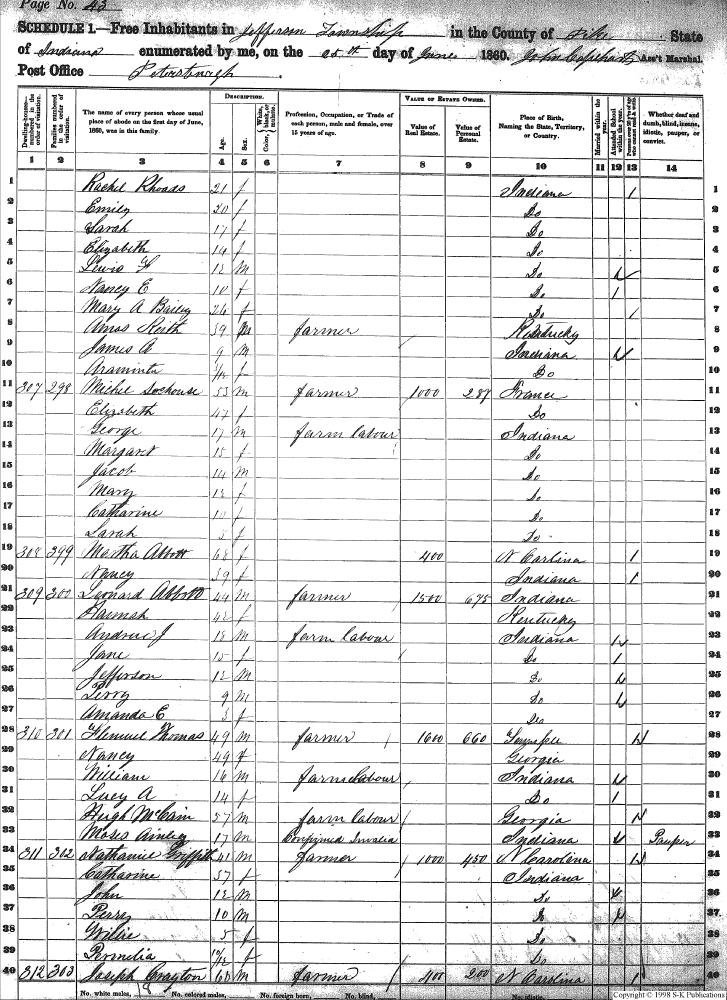 Page No. 43
SCHEDULE 1.—Free Inhabitants in Jefferson Township in the County of Pike State
of Indiana enumerated by me, on the 25th day of June 1860. John Capehart Ass't Marshal.
Post Office Petersburgh
Dwelling-houses numbered in the order of visitation.
Families numbered in the order of visitation.
The name of every person whose usual place of abode on the first day of June, 1860, was in this family.
DESCRIPTION.
Age.
Sex.
Color, White, black, or mulatto.
Profession, Occupation, or Trade of each person, male and female, over 15 years of age.
VALUE OF ESTATE OWNED.
Value of Real Estate.
Value of Personal Estate.
Place of Birth, Naming the State, Territory, or Country.
Married within the year.
Attended School within the year.
Whether deaf and dumb, blind, insane, idiotic, pauper, or convict.
1 2 3 4 5 6 7 8 9 10 11 12 13 14
1 Rachel Rhoads 21 f Indiana / 1
2 Emily 20 f Do 2
3 Sarah 17 f Do 3
4 Elizabeth 14 f Do 4
5 Lewis 12 m Do 5
6 Nancy E 10 f Do 1 6
7 Mary A Bailey 26 f Do / 7
8 Amos Keith 39 m farmer Kentucky 8
9 James A 9 m Indiana 9
10 Araminta f Do 10
11 307 298 Michel 53 m farmer 1000 287 France 11
12 Elizabeth 47 f Do 12
13 George 17 m farm labour Indiana 13
14 Margaret 15 f Do 14
15 Jacob 14 m Do 15
16 Mary 12 f Do 16
17 Catharine f Do 17
18 Sarah f Do 18
19 308 299 Martha Abbott 68 f 400 N Carlina 1 19
20 Nancy 39 f Indiana 1 20
21 309 300 Leonard Abbott 44 m farmer 1500 675 Indiana 21
22 Hannah 42 f Kentucky 22
23 Andrew J 18 m farm labour Indiana 23
24 Jane 15 f Do 1 24
25 Jefferson 12 m Do 25
26 Perry 9 m Do 26
27 Amanda E 3 f Do 27
28 310 301 Thomas 49 m farmer 1600 660 28
29 Nancy 49 f Georgia 29
30 William 16 m farm labour Indiana 30
31 Lucy A 14 f Do 1 31
32 Hugh McCain 57 m farm labour Georgia 32
33 Moses Ainley 17 m Confirmed Invalid Indiana Pauper 33
34 311 302 Nathaniel Griffith 41 m farmer 1000 450 N Carolena 34
35 Catharine 37 f Indiana 35
36 John 12 m Do 36
37 Perry 10 m Do 37
38 Willie 5 f Do 38
39 Permelia f Do 39
40 312 303 Joseph Crayton 60 m farmer 400 200 N Carolina 1 40
No. white males, 18 No. colored males, No. foreign born, No. blind,
Copyright © 1998 S-K Publications